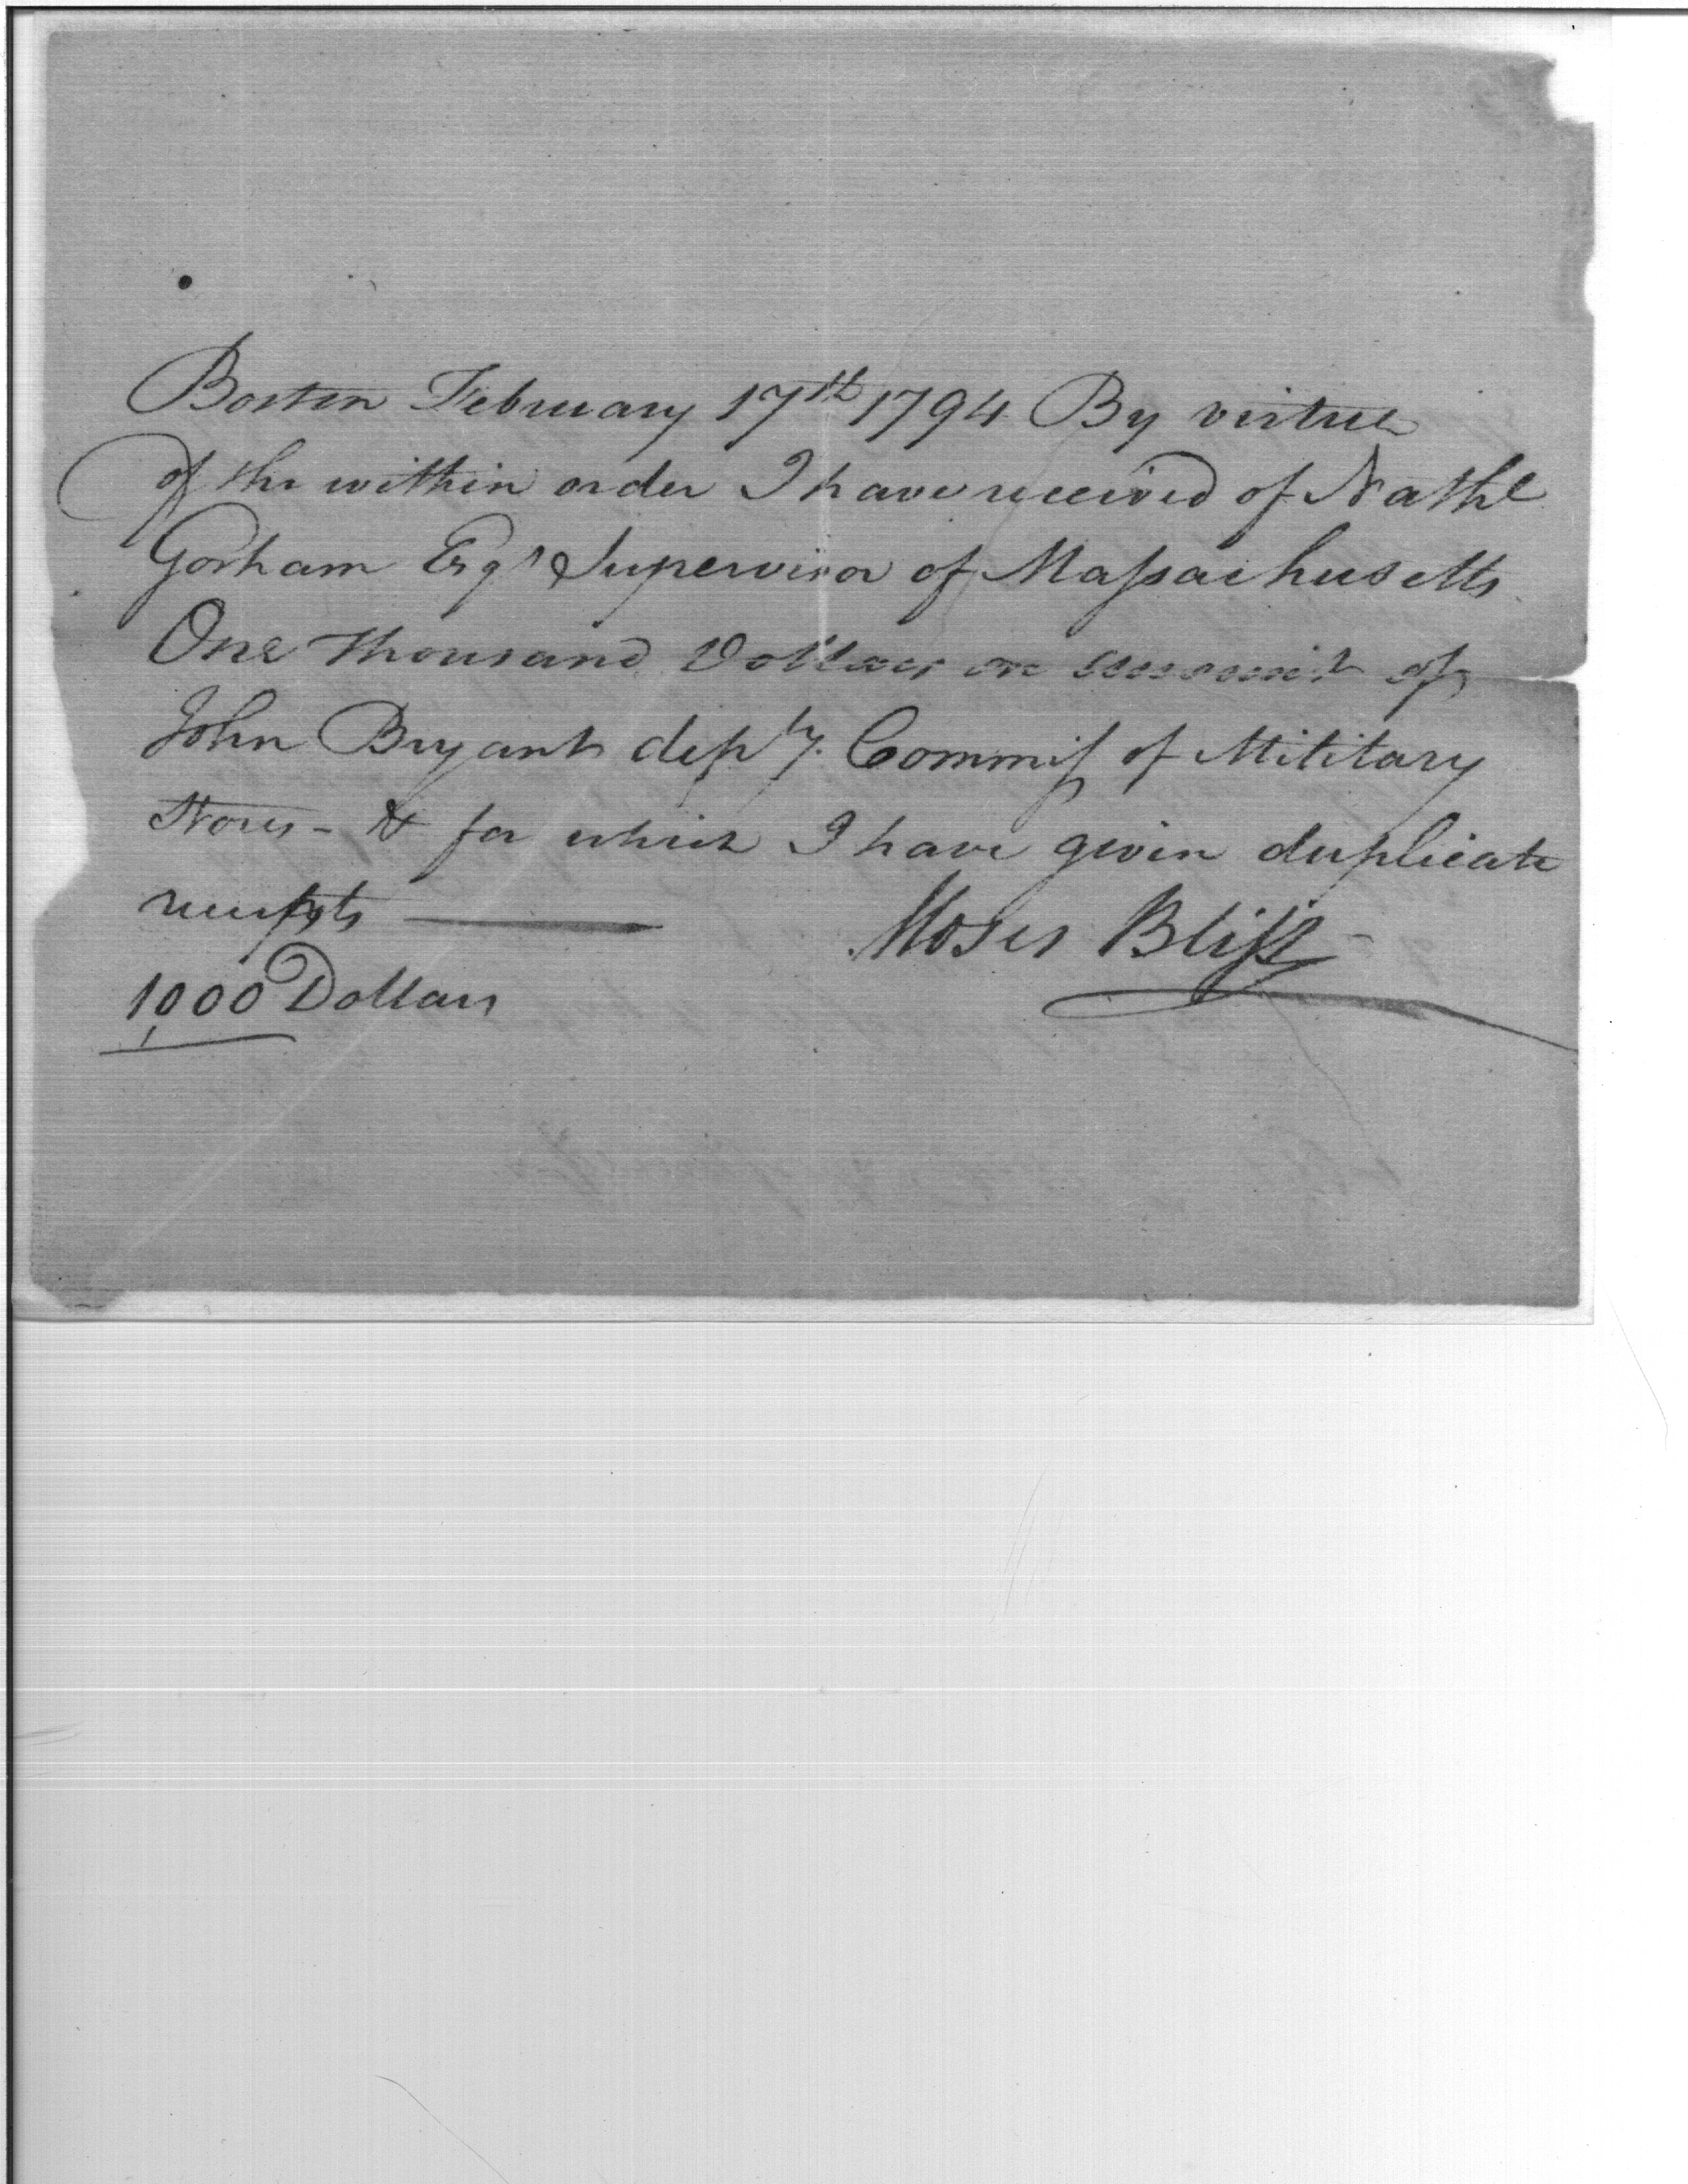 Boston February 17th 1794 By virtue
of the within order I have received of Nathl
Gorham Esqr Supervisor of Massachusetts
One thousand Dollars on account of
John Bryant depty. Commiss of Military
Stores - & for which I have given duplicate
receipts
Moses Bliss
1,000 Dollars